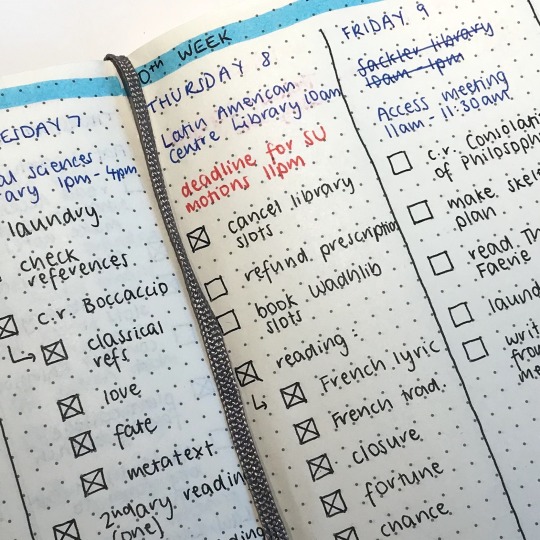 0th WEEK
7
sciences
1pm - 4pm
laundry
check
references
c.r. Boccaccio
classical
refs
love
fate
metatext
2ndary reading
(one)
THURSDAY 8
Latin American
Centre Library 10am
deadline for SU
motions 11pm
cancel library
slots
refund prescription
book Wadhlib
slots
reading:
French lyric
French trad.
closure
fortune
chance
FRIDAY 9
Sackler library
10am - 1pm
Access meeting
11am - 11:30am
c.r.
of
make
plan
read
Faerie